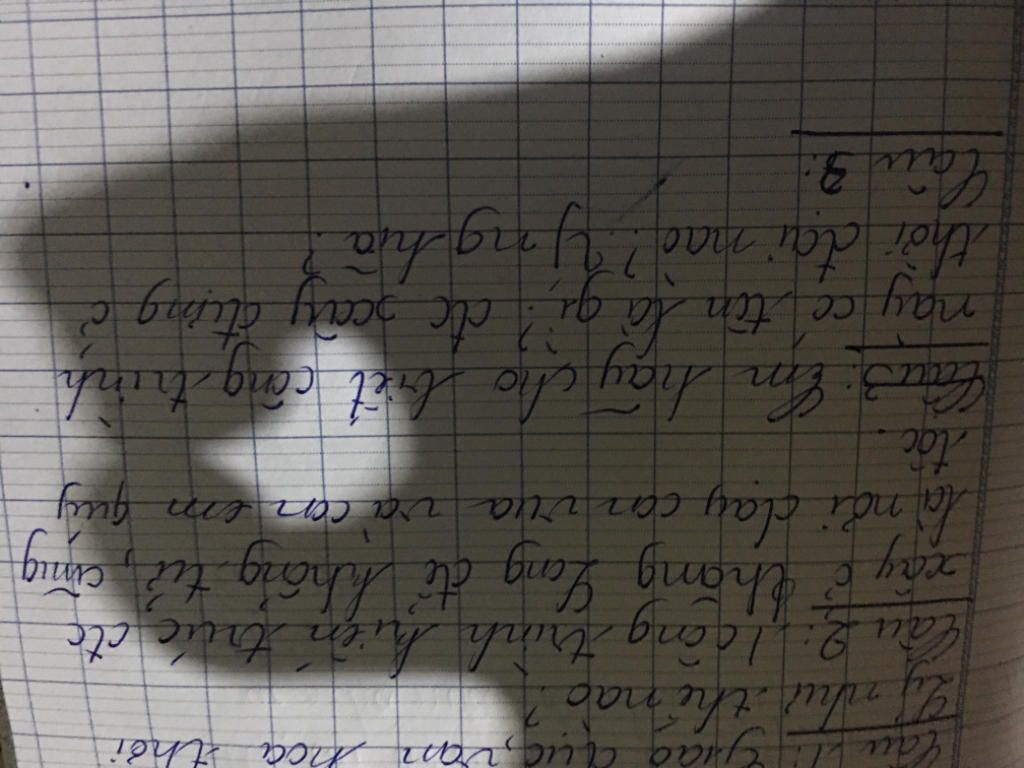 Câu 1: Giáo dục, văn hoá thời
Lý như thế nào?
Câu 2: 1 công trình kiến trúc đc
xây ở thăng Long để khổng tử, cũng
là nơi dạy con vua và con em quý
tộc.
Câu 3: Em hãy cho biết công trình
này có tên là gì? đc xây dựng ở
thời đại nào? Ý nghĩa?
Câu 3: